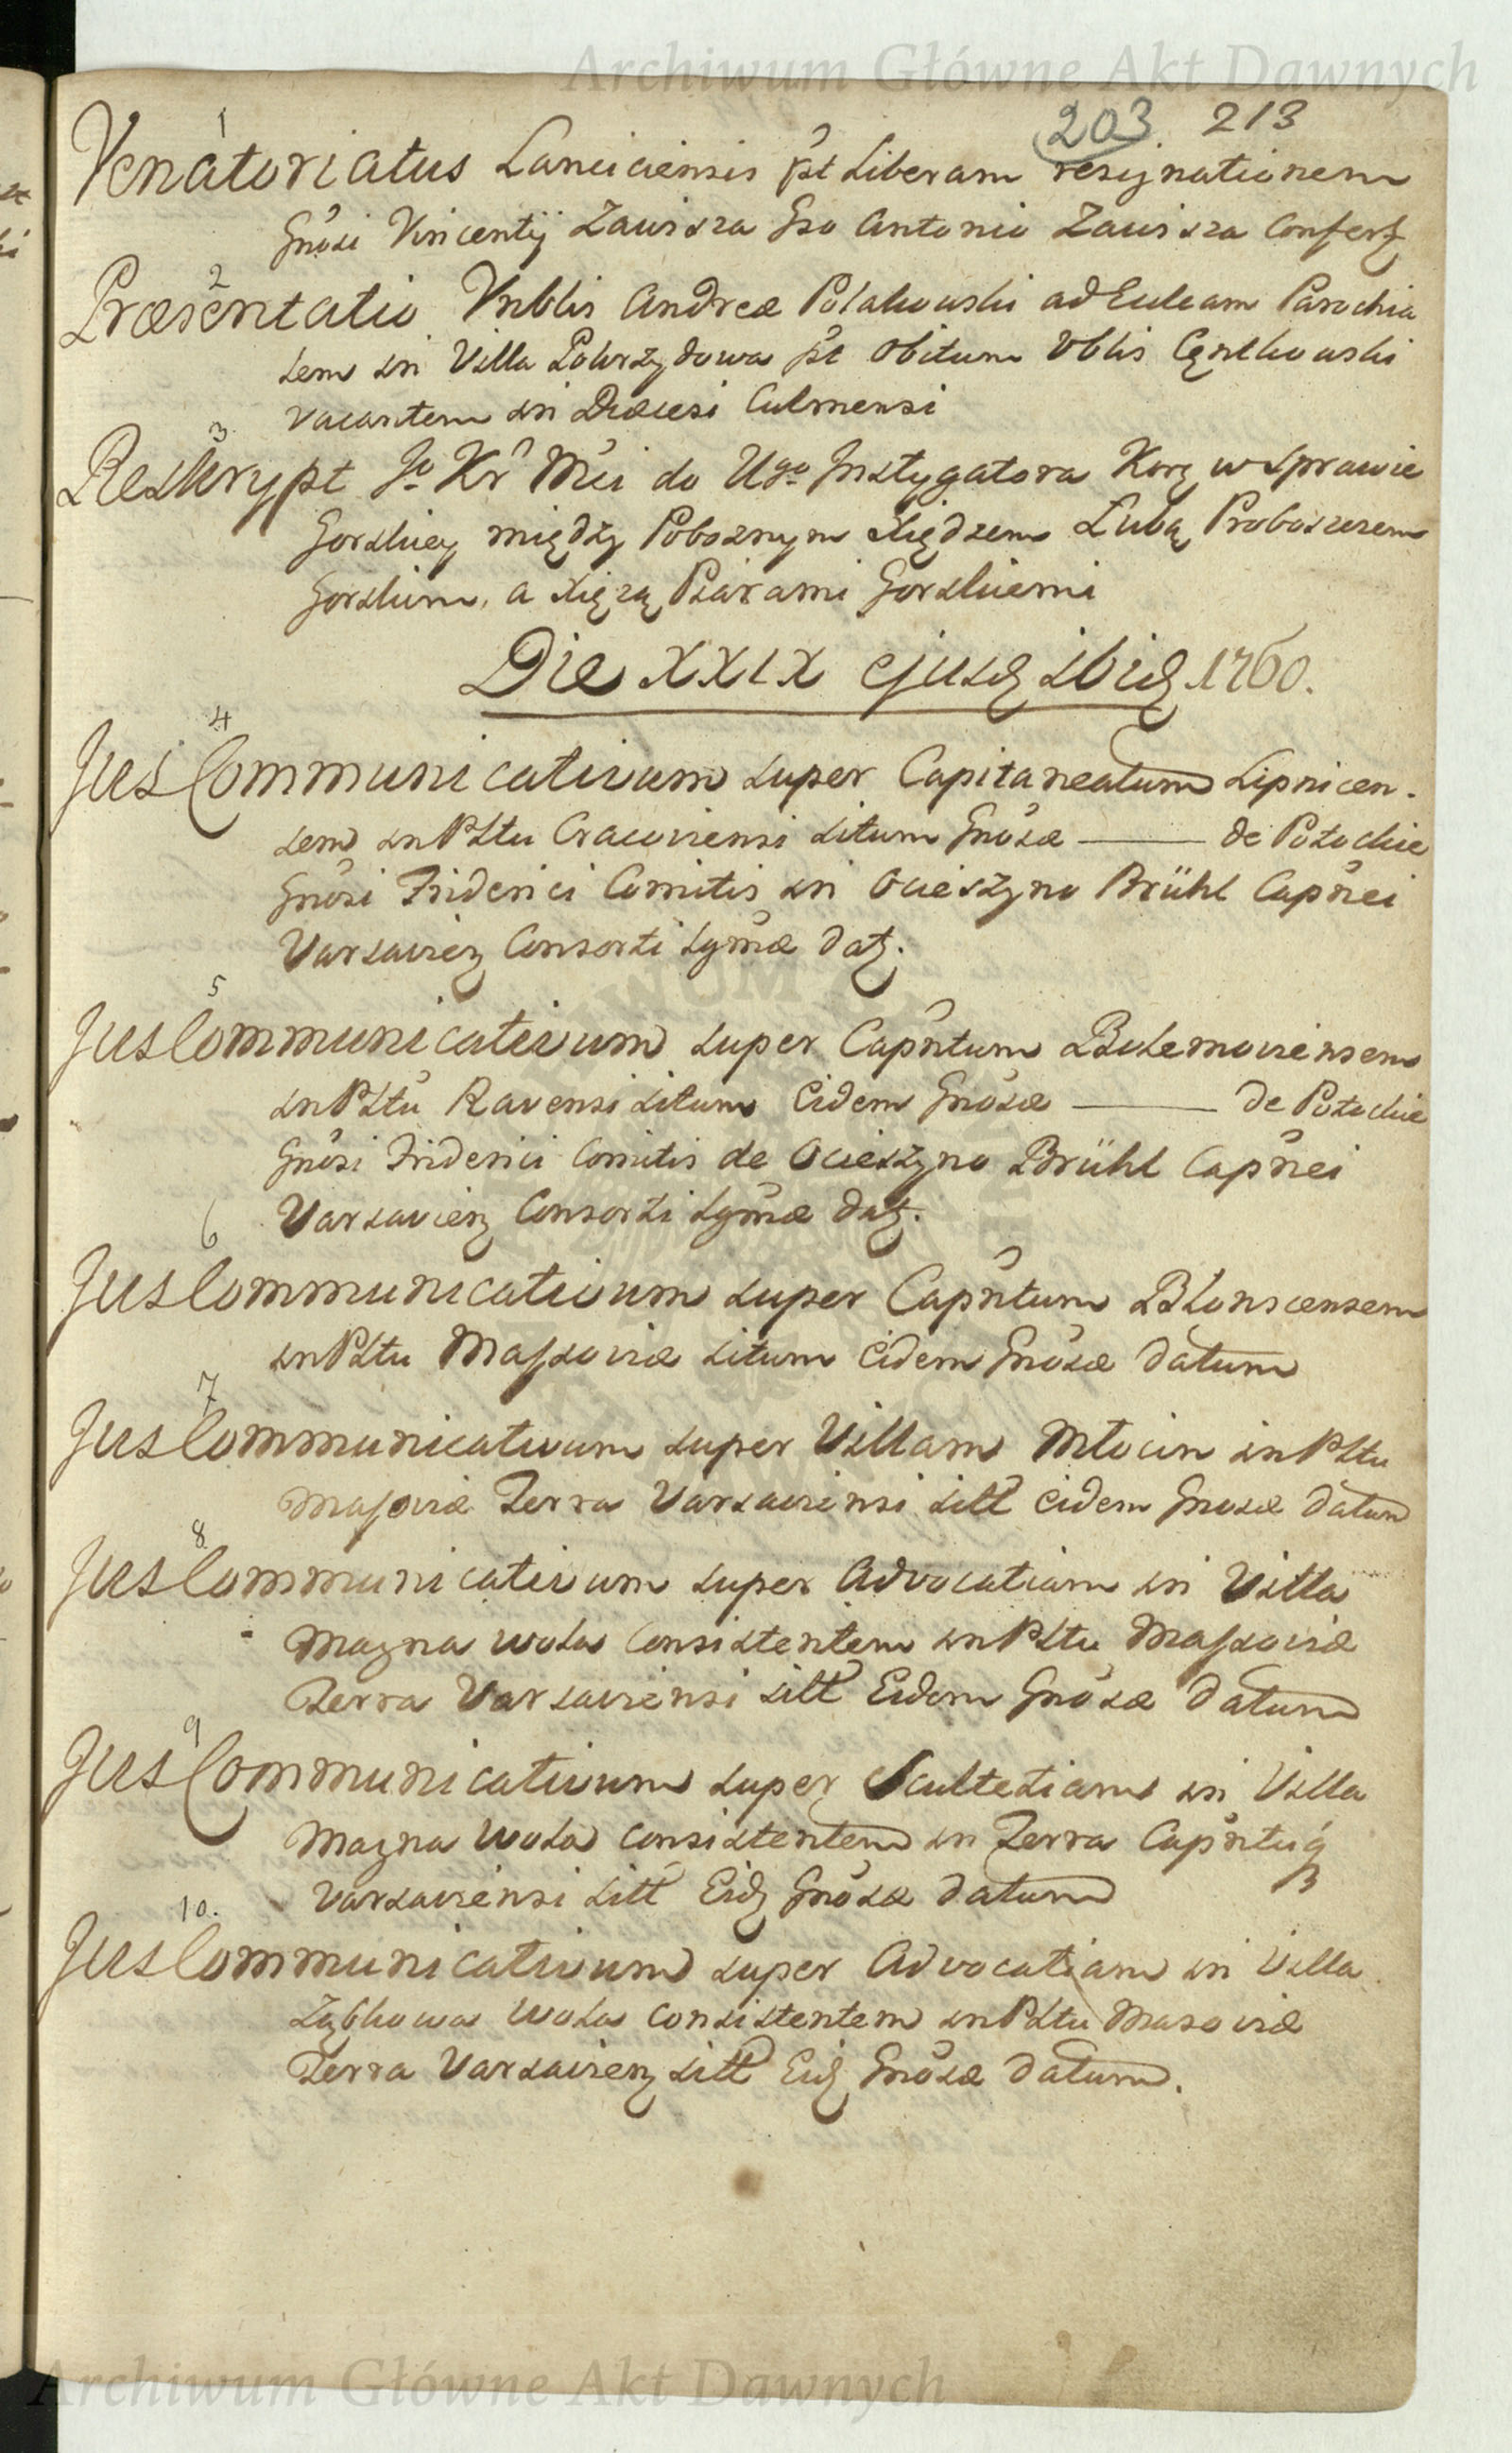 Archiwum Główne Akt Dawnych
203 213
1
Venatoriatus Lanciciensis pt Liberam resignationem
Gnosi Vincentij Zawisza Gso Antonio Zawisza Confertz
2
Præsentatio Vnblis Andreæ Polakowski ad Ecleam Parochia
lem in Villa Pokrzydowa pt Obitum Vblis
vacantem in Diæcesi Culmensi
3.
Reskrypt Jo Kr Mci do Ugo Instygatora Korz w Sprawie
Gorskiey między Pobożnym Xiędzem Lubą Proboszczem
Gorskim, a Xięzą Piarami Gorskiemi
Die XXIX ejusdz ibidz 1760.
4
Jus Communicativum super Capitaneatum Lipnicen.
sem in Pltu Cracoviensi situm Gnosæ —— de Potockie
Gnosi Friderici Comitis in Ocieszyno Brühl Capnei
Varsavienz Consorti Lgmæ datz.
5
Jus Communicativum super Capntum Bolemoviensem
in Pltu Ravensi situm Eidem Gnosæ —— de Potockie
Gnosi Friderici Comitis de Ocieszyno Brühl Capnei
Varsavienz Consorti Lgmæ datz.
6
Jus Communicativum super Capntum Blonscensem
in Pltu Massoviæ situm Eidem Gnosæ datum
7
Jus Communicativum super Villam Mlocin in Pltu
Masoviæ Terra Varsaviensi sitt eidem Gnosæ datum
8
Jus Communicativum super Advocatiam in Villa
Magna Wola Consistentem in Pltu Massoviæ
Terra Varsaviensi sitt Eidem Gnosæ datum
9
Jus Communicativum super Scultetiam in Villa
Magna Wola Consistentem in Terra Capntuq
Varsaviensi sitt Eidz Gnosæ datum
10.
Jus Communicativum super Advocatiam in Villa
Zybkowa Wola Consistentem in Pltu Masoviæ
Terra Varsavienz sitt Eidz Gnosæ datum.
Archiwum Główne Akt Dawnych